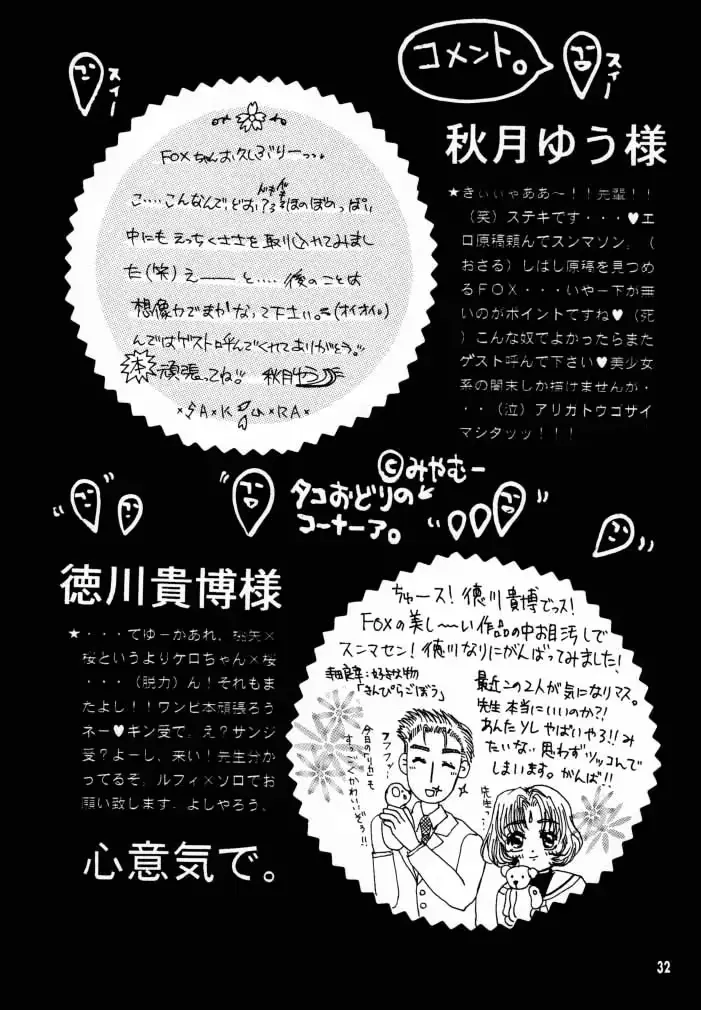 コメント。
スィー
スィー
秋月ゆう様
FOXちゃんお久しぶりーっ。
こ‥‥こんなんでどお?
ほのぼのめっぱい
中にもえっちくささを取り込れてみまし
た(笑)えーーと‥‥後のことは
想像力でまかなって下さい。(オイオイ。)
んではゲスト呼んでくれてありがとう。
本頑張ってね!! 秋月ゆう
×SA×KU×RA×
★きぃぃゃああ~!!先輩!!
(笑)ステキです・・・♥エ
ロ原稿頼んでスンマソン。(
おさる)しばし原稿を見つめ
るFOX・・・いやー下が無
いのがポイントですね♥(死
)こんな奴でよかったらまた
ゲスト呼んで下さい♥美少女
系の闇末しか描けませんが・
・・(泣)アリガトウゴサイ
マシタッッ!!!
©みやむー
タコおどりの
コーナーア。
徳川貴博様
★・・・てゆーかあれ、桃矢×
桜というよりケロちゃん×桜
・・・(脱力)ん!それもま
たよし!!ワンピ本頑張ろう
ネー♥キン受で。え?サンジ
受?よーし、来い!先生分か
ってるぞ。ルフィ×ソロでお
願い致します。よしやろう、
心意気で。
ちゅース!徳川貴博でっス!
FOXの美し〜い作品の中お目汚しで
スンマセン!徳川なりにがんばってみました!
寺田良幸:好きな物
「きんぴらごぼう」
最近この2人が気になりマス。
先生本当にいいのか?!
あんたソレやばいやろ!!み
たいな。思わずツッコんで
しまいます。がんば!!
フフフッ…
今日の「リカ」も
すっごくかわいいぞう!!
先生っ…
32